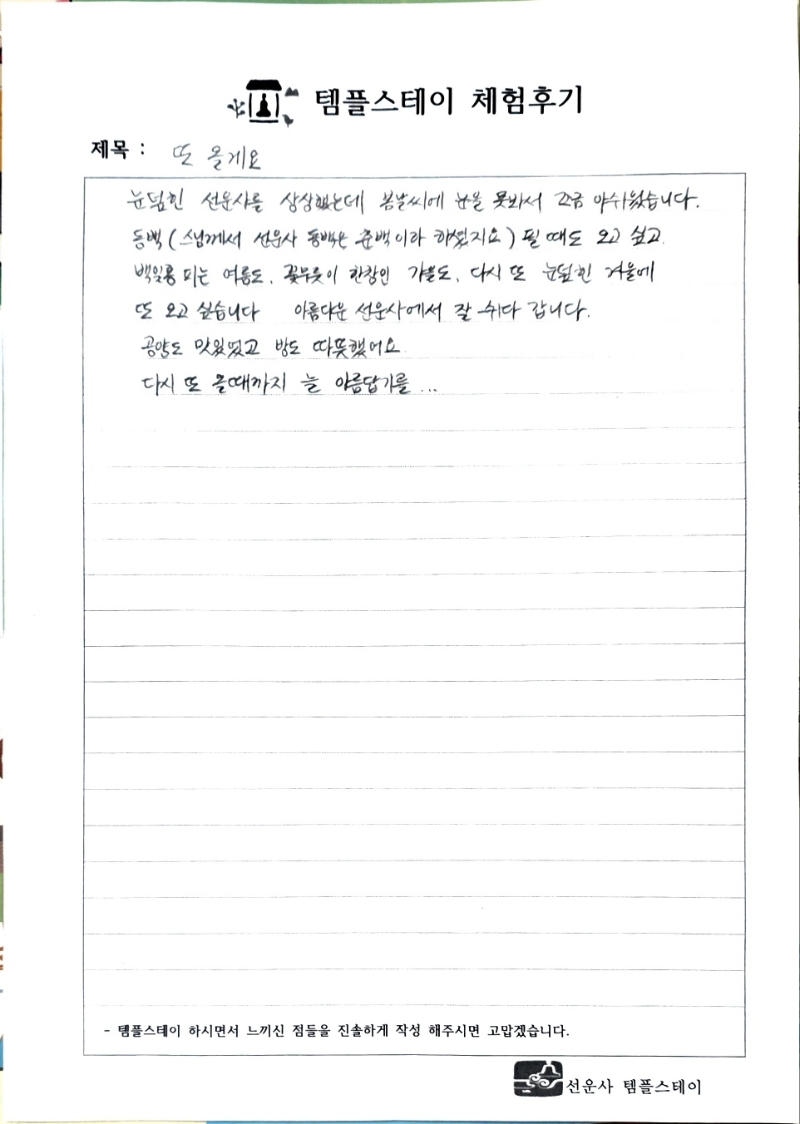 템플스테이 체험후기
제목 : 또 올게요
눈덮힌 선운사를 상상했는데 봄날씨에 눈을 못봐서 조금 아쉬웠습니다.
동백 (스님께서 선운사 동백은 춘백이라 하셨지요) 필 때도 오고 싶고.
백일홍 피는 여름도, 꽃무릇이 한창인 가을도, 다시 또 눈덮힌 겨울에
또 오고 싶습니다 아름다운 선운사에서 잘 쉬다 갑니다.
공양도 맛있었고 방도 따뜻했어요
다시 또 올때까지 늘 아름답기를 ...
- 템플스테이 하시면서 느끼신 점들을 진솔하게 작성 해주시면 고맙겠습니다.
선운사 템플스테이